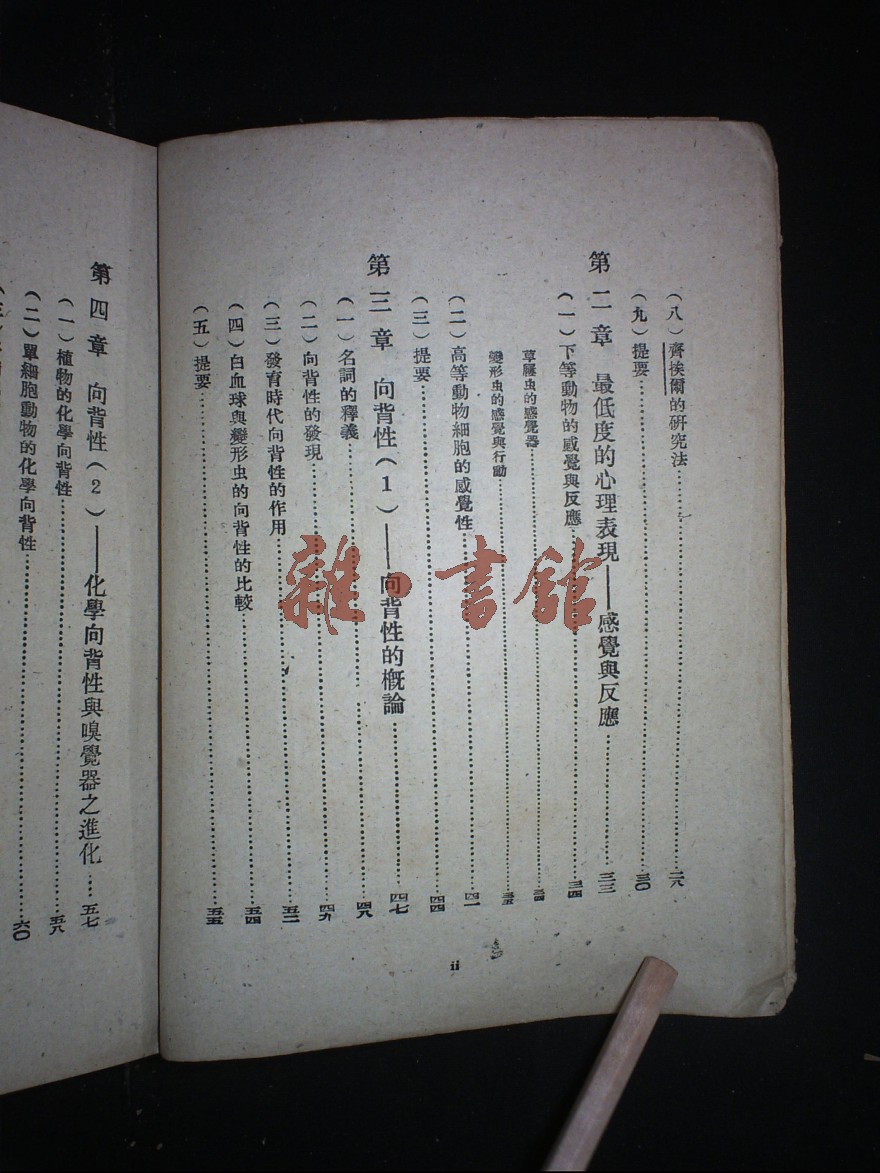 （八）齊挨爾的硏究法……二八
（九）提要……三〇
第二章 最低度的心理表現——感覺與反應……三三
（一）下等動物的感覺與反應……三四
草履虫的感覺器……三四
變形虫的感覺與行動……三五
（二）高等動物細胞的感覺性……四一
（三）提要……四四
第三章 向背性（1）——向背性的槪論……四七
（一）名詞的釋義……四八
（二）向背性的發現……四九
（三）發育時代向背性的作用……五二
（四）白血球與變形虫的向背性的比較……五四
（五）提要……五五
ii
第四章 向背性（2）——化學向背性與嗅覺器之進化……五七
（一）植物的化學向背性……五八
（二）單細胞動物的化學向背性……六〇
雜·書館